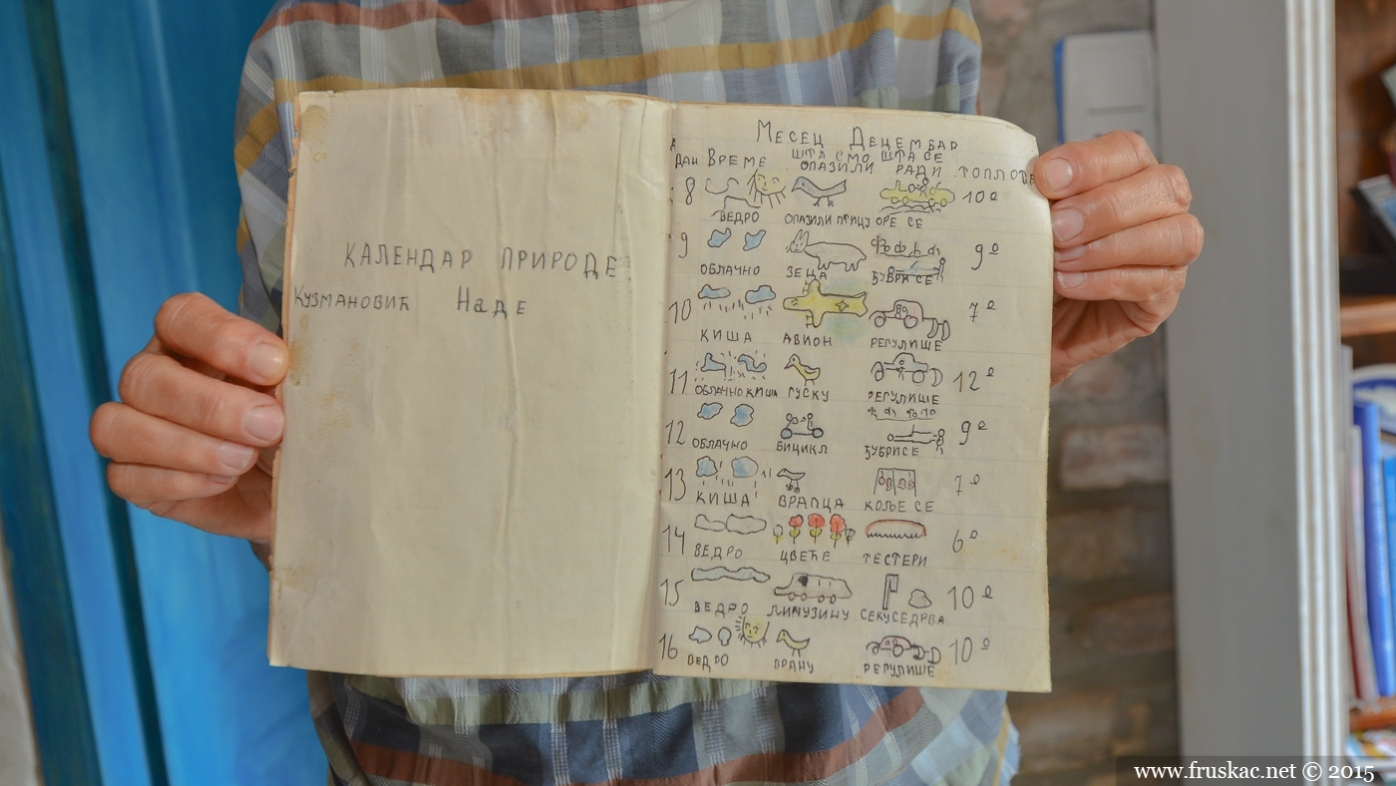 КАЛЕНДАР ПРИРОДЕ
КУЗМАНОВИЋ НаДЕ
МЕСЕЦ ДЕЦЕМБАР
ДАН ВРЕМЕ ШТА СМО ОПАЗИЛИ ШТА СЕ РАДИ ТОПЛОТА
8 ВЕДРО ОПАЗИЛИ ПТИЦУ ОРЕ СЕ 10º
9 ОБЛАЧНО ЗЕЦА ЂУБРИ СЕ 9º
10 КИША АВИОН РЕГУЛИШЕ 7º
11 ОБЛАЧНО КИША ГУСКУ РЕГУЛИШЕ 12º
12 ОБЛАЧНО БИЦИКЛ ЂУБРИ СЕ 9º
13 КИША ВРАПЦА КОЉЕ СЕ 7º
14 ВЕДРО ЦВЕЋЕ ТЕСТЕРИ 6º
15 ВЕДРО ЛИМУЗИНУ СЕКУСЕДРВА 10º
16 ВЕДРО ВРАНУ РЕГУЛИШЕ 10º
www.fruskac.net © 2015